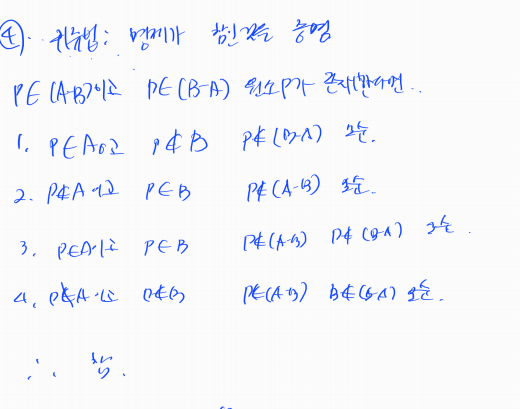 ④. 귀류법: 명제가 참인것을 증명
P∈(A-B)이고 P∈(B-A) 원소P가 존재한다면..
1. P∈A이고 P∉B P∉(B-A) 모순.
2. P∉A이고 P∈B P∉(A-B) 모순.
3. P∈A이고 P∈B P∉(A-B) P∉(B-A) 모순.
4. P∉A이고 P∉B P∉(A-B) B∉(B-A) 모순.
∴ 참.